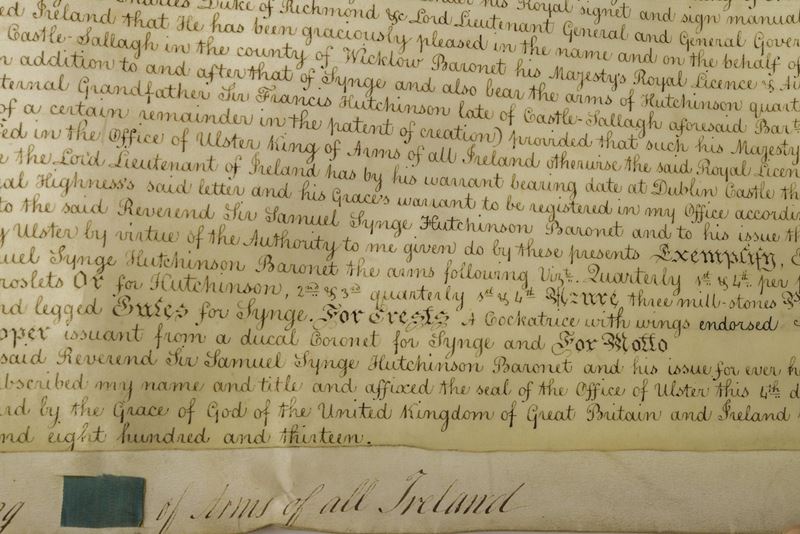 Charles Duke of Richmond &c Lord Lieutenant General and General Gover
ed Ireland that He has been graciously pleased in the name and on the behalf of
Castle-Sallagh in the county of Wicklow Baronet his Majesty's Royal Licence &
n addition to and after that of Synge and also bear the arms of Hutchinson quart
ternal Grandfather Sir Francis Hutchinson late of Castle-Sallagh aforesaid Bart
of a certain remainder in the patent of creation) provided that such his Majesty
ed in the Office of Ulster King of Arms of all Ireland otherwise the said Royal Licen
e the Lord Lieutenant of Ireland has by his warrant bearing date at Dublin Castle th
al Highness's said letter and his Grace's warrant to be registered in my Office accordin
to the said Reverend Sir Samuel Synge Hutchinson Baronet and to his issue th
y Ulster by virtue of the Authority to me given do by these presents Exemplify,
uel Synge Hutchinson Baronet the arms following Vizt. Quarterly 1st & 4th. per p
roslets Or for Hutchinson, 2nd & 3rd quarterly 1st & 4th Azure three mill-stones
nd legged Gules for Synge. For Crests A Cockatrice with wings endorsed
opper issuant from a ducal Coronet for Synge and For Motto
said Reverend Sir Samuel Synge Hutchinson Baronet and his issue for ever h
ubscribed my name and title and affixed the seal of the Office of Ulster this 4th. d
ird by the Grace of God of the United Kingdom of Great Britain and Ireland
nd eight hundred and thirteen.
ng of Arms of all Ireland